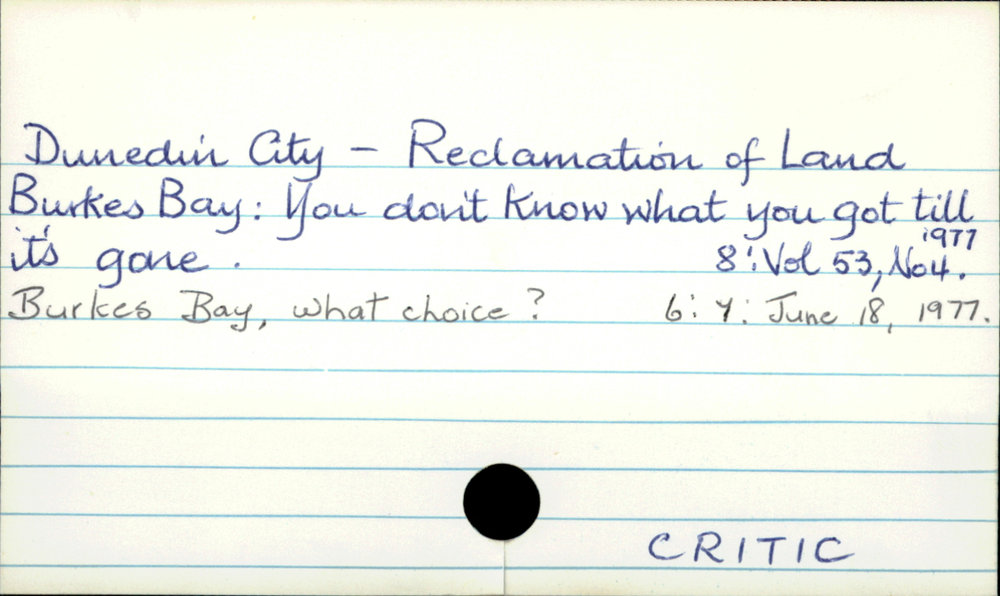 Dunedin City - Reclamation of Land
Burkes Bay: You don't know what you got till
it's gone. 8: Vol 53, No4. 1977
Burkes Bay, what choice? 6: 7: June 18, 1977.
CRITIC